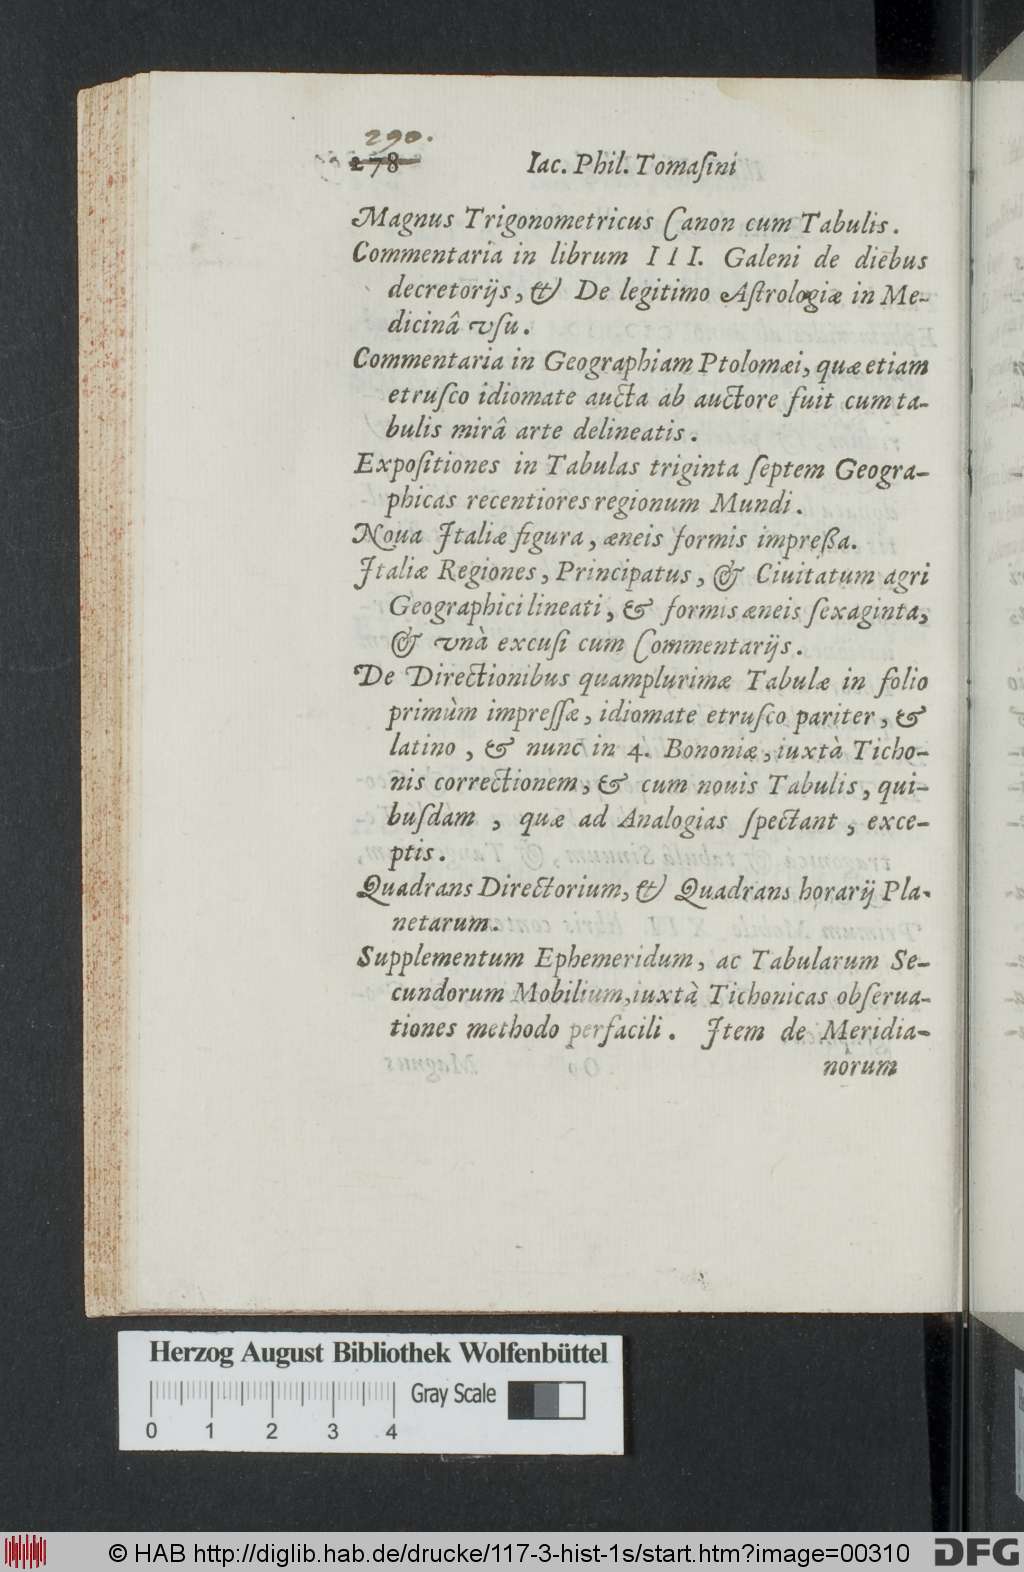 290.
278
Iac. Phil. Tomaſini
Magnus Trigonometricus Canon cum Tabulis.
Commentaria in librum III. Galeni de diebus
decretorijs, & De legitimo Aſtrologiæ in Me-
dicinâ vſu.
Commentaria in Geographiam Ptolomæi, quæ etiam
etruſco idiomate aucta ab auctore fuit cum ta-
bulis mirâ arte delineatis.
Expoſitiones in Tabulas triginta ſeptem Geogra-
phicas recentiores regionum Mundi.
Noua Italiæ figura, æneis formis impreßa.
Italiæ Regiones, Principatus, & Ciuitatum agri
Geographici lineati, & formis æneis ſexaginta,
& vnà excuſi cum Commentarijs.
De Directionibus quamplurimæ Tabulæ in folio
primùm impreſſæ, idiomate etruſco pariter, &
latino, & nunc in 4. Bononiæ, iuxtà Ticho-
nis correctionem, & cum nouis Tabulis, qui-
buſdam, quæ ad Analogias ſpectant, exce-
ptis.
Quadrans Directorium, & Quadrans horarij Pla-
netarum.
Supplementum Ephemeridum, ac Tabularum Se-
cundorum Mobilium, iuxtà Tichonicas obſerua-
tiones methodo perfacili. Item de Meridia-
norum
Herzog August Bibliothek Wolfenbüttel
Gray Scale
0 1 2 3 4
© HAB http://diglib.hab.de/drucke/117-3-hist-1s/start.htm?image=00310
DFG